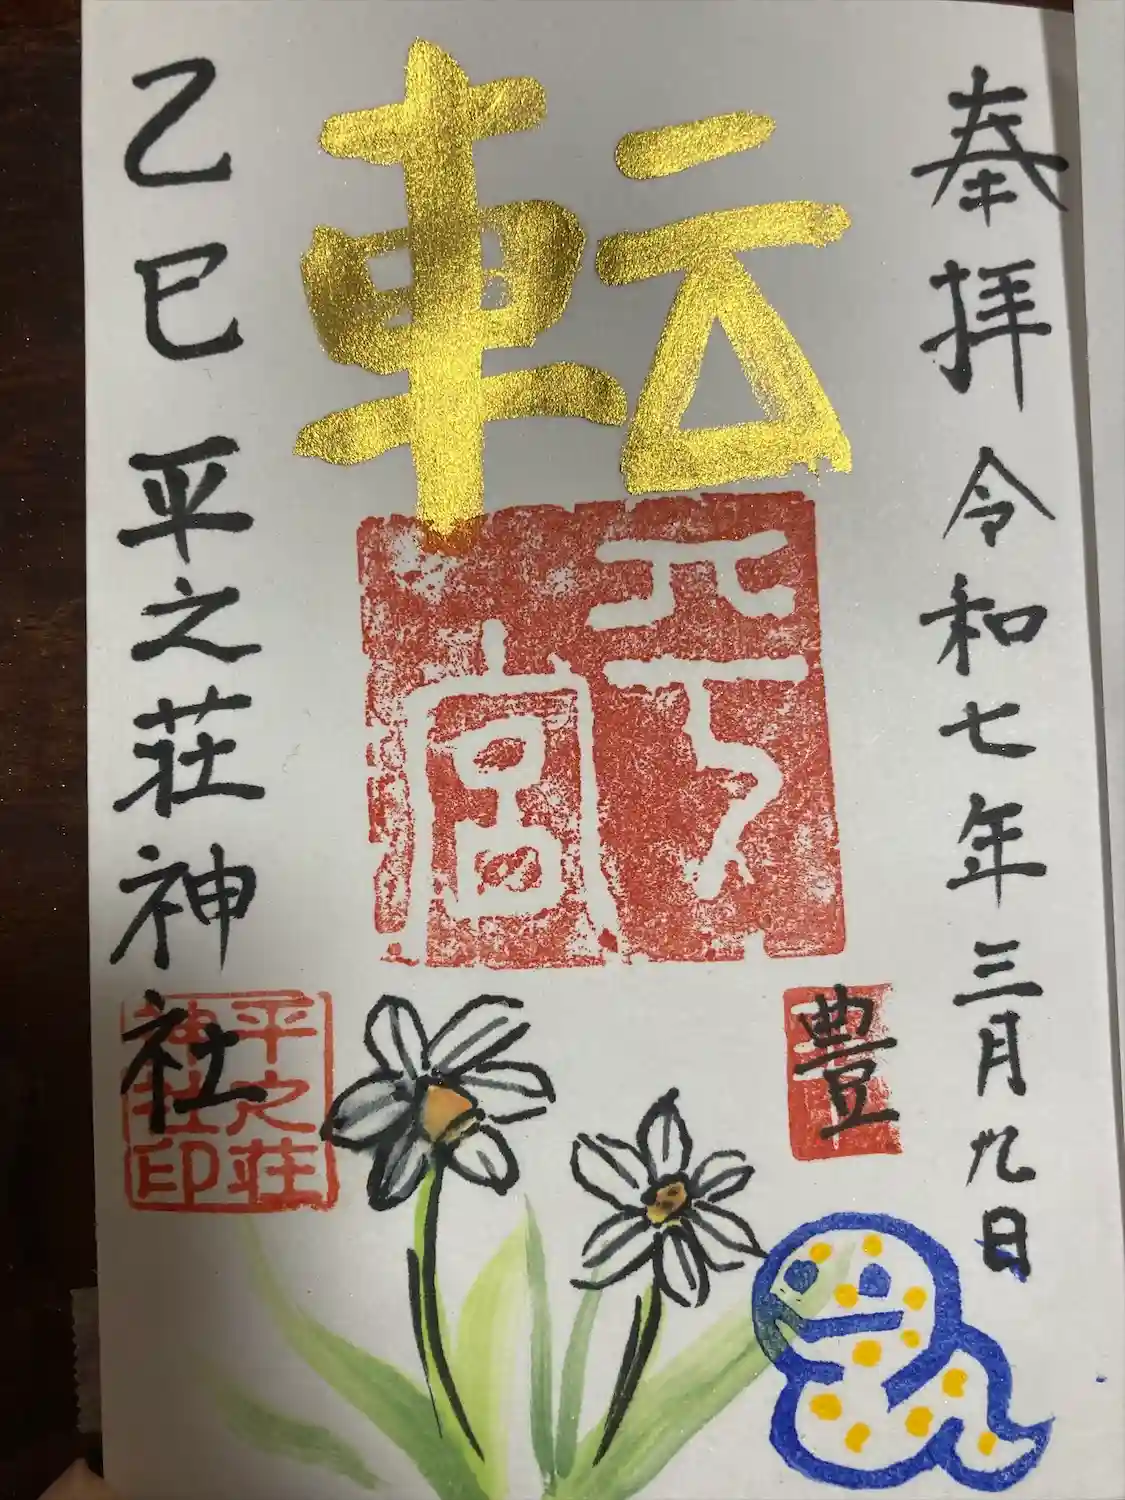 奉拝 令和七年三月九日
豊
転
乙巳 平之荘神社
平之荘
神社印